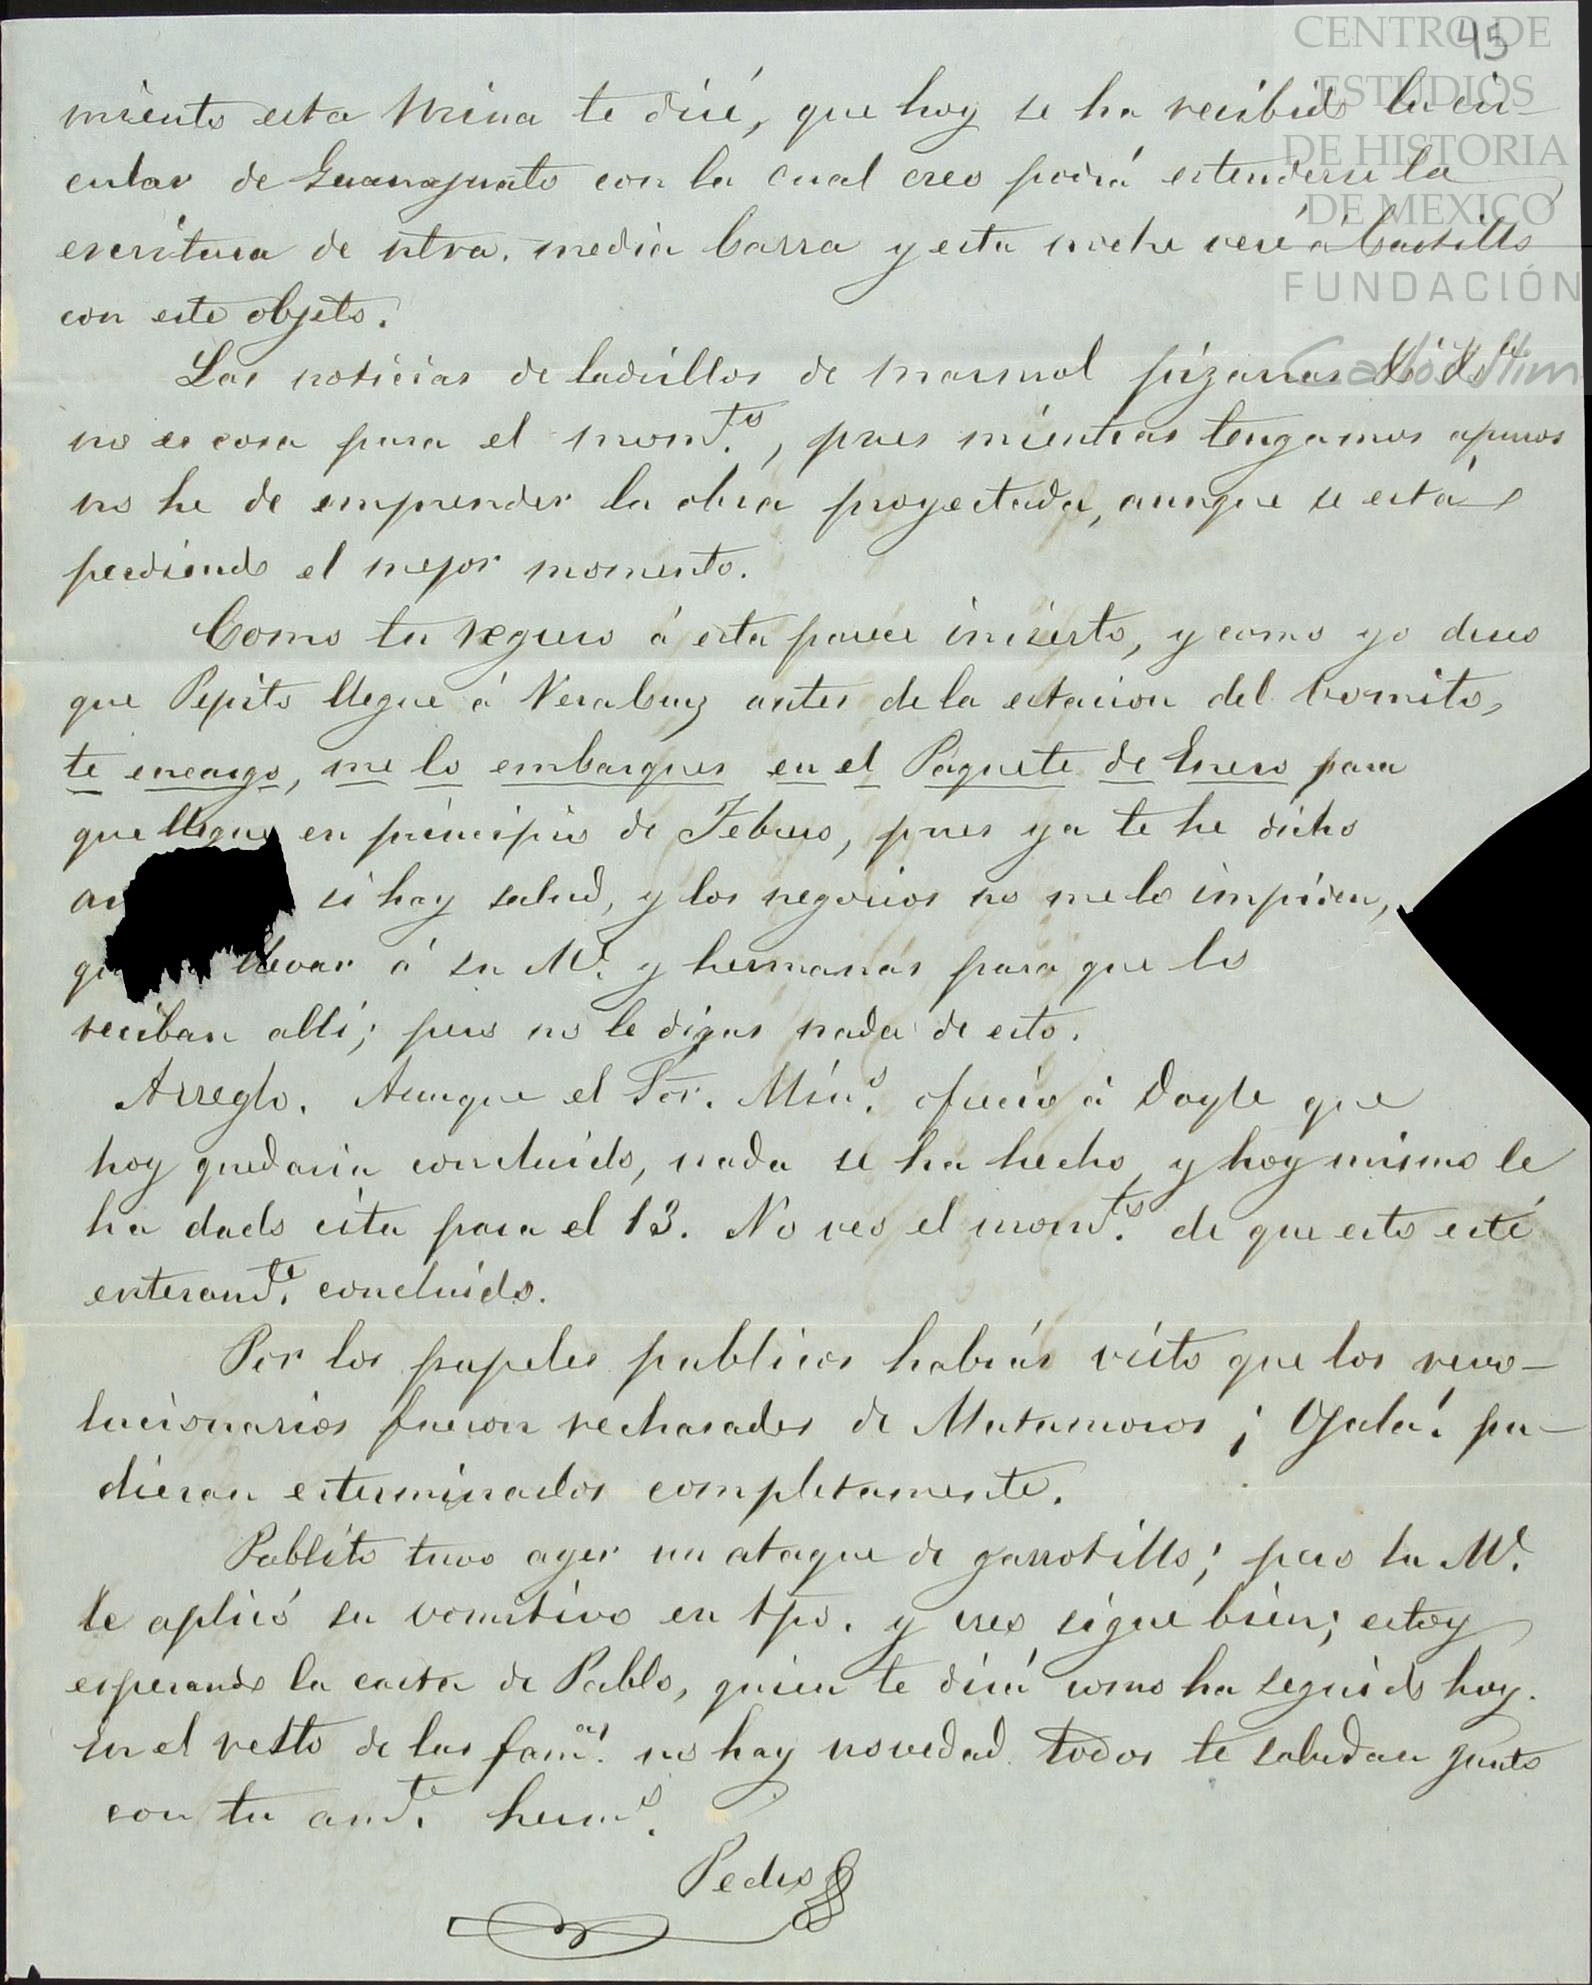 45
CENTRO DE
ESTUDIOS
DE HISTORIA
DE MEXICO
FUNDACIÓN
Carlos Slim
miento esta Mina te diré, que hoy se ha recibido la cir-
cular de Guanajuato con la cual creo podrá estenderse la
escritura de ntra. media barra y esta noche veré á Castillo
con este objeto.
Las noticias de ladrillos de marmol pizarras &a &a
no es cosa para el mom.to, pues mientras tengamos apuros
no he de emprender la obra proyectada, aunque se está
perdiendo el mejor momento.
Como tu regreso á esta parece incierto, y como yo deseo
que Pepito llegue á VeraCruz antes de la estacion del bomito,
te encargo, me lo embarques en el Paquete de Enero para
que llegue en principio de Febrero, pues ya te he dicho
si hay salud, y los negocios no me lo impiden,
llevar á su M.e y hermanas para que lo
reciban allí; pero no le digas nada de esto.
Arreglo. Aunque el Sor. Min.o ofrecio á Doyle que
hoy quedaria concluido, nada se ha hecho, y hoy mismo le
ha dado cita para el 13. No veo el mom.to de que esto esté
enteram.te concluido.
Por los papeles publicos habrás visto que los revo-
lucionarios fueron rechasados de Matamoros ¡Ojala! pu-
dieran esterminarlos completamente.
Pablito tuvo ayer un ataque de garrotillo; pero su M.e
le aplicó su vomitivo en tpo. y creo sigue bien; estoy
esperando la carta de Pablo, quien te dirá como ha seguido hoy.
En el resto de las fam.as no hay novedad todos te saludan junto
con tu am.te herm.o
Pedro